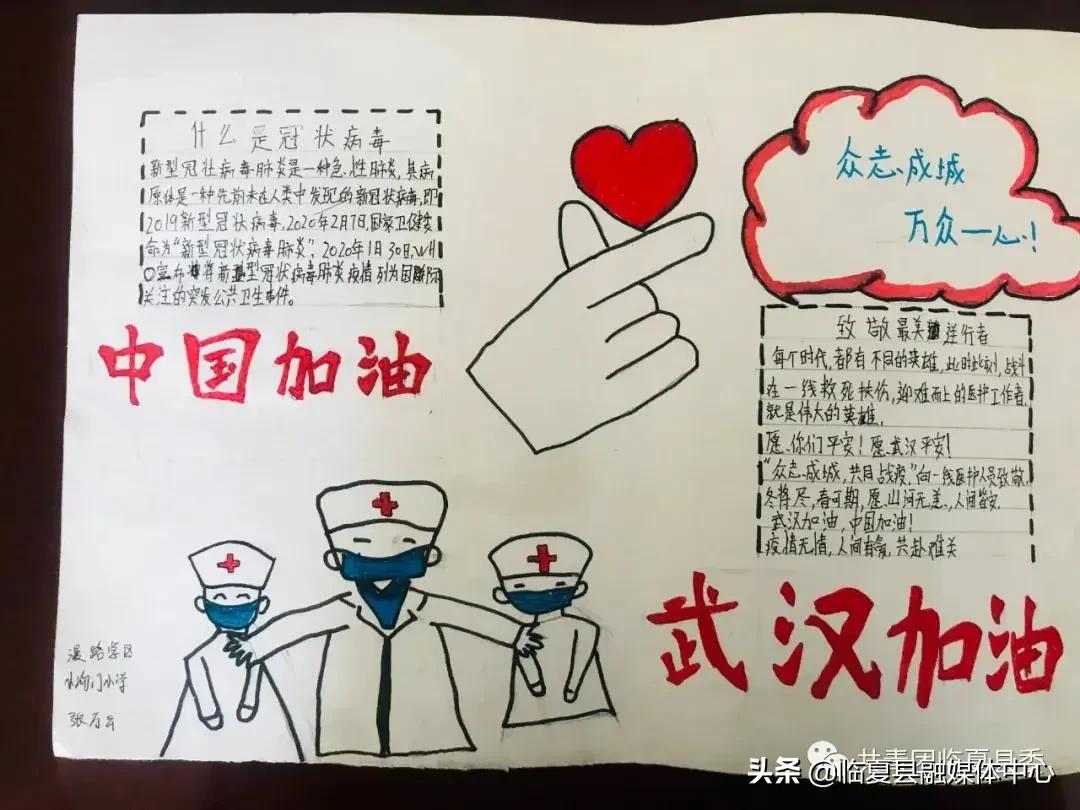 什么是冠状病毒
新型冠壮病毒肺炎是一种急性肺炎，其病
原体是一种先前未在人类中发现的新冠状病毒，即
2019新型冠状病毒，2020年2月7日，国家卫健委
命为“新型冠状病毒肺炎”，2020年1月30日，WH
O宣布将新型冠状病毒肺炎疫情列为国际
关注的突发公共卫生事件。
中国加油
众志成城
万众一心！
致敬最美逆行者
每个时代，都有不同的英雄，此时此刻，战斗
在一线救死扶伤，迎难而上的医护工作者，
就是伟大的英雄，
愿你们平安！愿武汉平安！
“众志成城，共同战疫，”向一线医护人员致敬，
冬将尽，春可期，愿山河无恙，人间皆安，
武汉加油，中国加油！
疫情无情，人间有爱，共赴难关
武汉加油
漫路学区
小沟门小学
张万云
共青团临夏县委
头条@临夏县融媒体中心